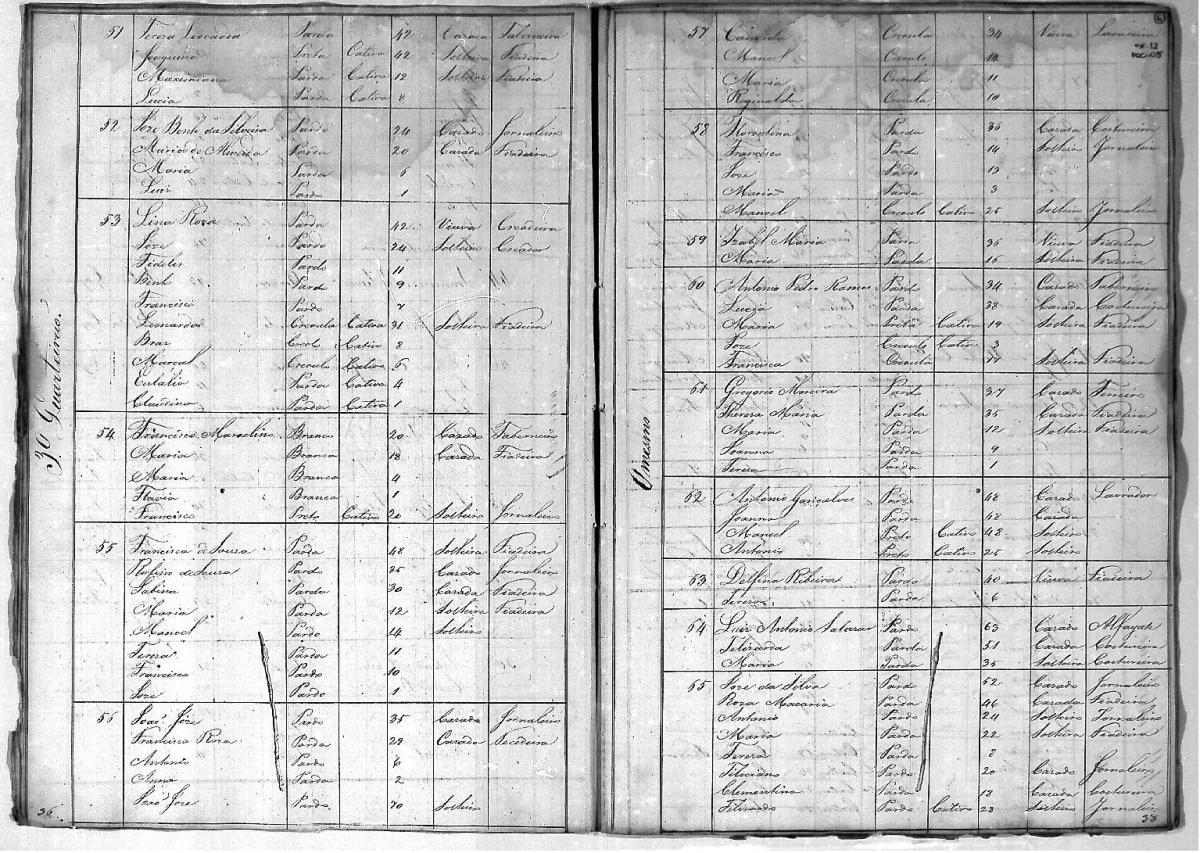 3.º Quarteirão.
51 Tereza Leocadia Parda 42 Cazada Taberneira
Joaquina Preta Cativa 42 Solteira Fiadeira
Maximiana Parda Cativa 12 Solteira Fiadeira
Lucia Parda Cativa 8
52 Joze Bento da Silveira Pardo 24 Cazado Jornaleiro
Maria de Almeida Parda 20 Cazada Fiadeira
Maria Parda 5
Luiz Pardo 1
53 Lina Roza Parda 42 Viuva Creadeira
Joze Pardo 24 Solteiro Creador
Fidelis Pardo 11
Bento Pardo 9
Francisco Pardo 7
Leonarda Creoula Cativa 31 Solteira Fiadeira
Braz Cativo 8
Marcal Creoulo Cativo 5
Eulalia Parda Cativa 4
Claudina Parda Cativa 1
54 Francisco Marcelino Branco 20 Cazado Taberneiro
Maria Branca 18 Cazada Fiadeira
Maria Branca 4
Flavia Branca 1
Francisco Preto Cativo 20 Solteiro Jornaleiro
55 Francisca de Souza Parda 48 Solteira Fiadeira
Rufino de Souza Pardo 35 Cazado Jornaleiro
Sabina Parda 30 Cazada Fiadeira
Maria Parda 12 Solteira Fiadeira
Manoel Pardo 14 Solteiro
Tereza Parda 11
Francisco Pardo 10
Joze Pardo 1
56 Joaõ Joze Pardo 35 Cazado Jornaleiro
Francisca Roza Parda 29 Cazada Tecedeira
Antonio Pardo 6
Anna Parda 2
Joaõ Joze Pardo 70 Solteiro
36
6
cx. 12
DOC. 05
O mesmo
57 Creoula 34 Viuva Lavadeira
Manoel Creoulo 14
Maria Creoula 11
Reginalda Creoula 10
58 Florentina Parda 36 Cazada Costureira
Francisco Pardo 14 Solteiro Jornaleiro
Joze Pardo 13
Maria Parda 3
Manoel Creoulo Cativo 25 Solteiro Jornaleiro
59 Izabel Maria Parda 36 Viuva Fiadeira
Maria Parda 16 Solteira Fiadeira
60 Antonio Pedro Ramos Pardo 34 Cazado Taberneiro
Luiza Parda 38 Cazada Costureira
Maria Preta Cativa 19 Solteira Fiadeira
Joze Creoulo Cativo 3
Francisca Creoula 17 Solteira Fiadeira
61 Gregorio Moreira Pardo 37 Cazado Ferreiro
Thereza Maria Parda 35 Cazada Fiadeira
Maria Parda 12 Solteira Fiadeira
Joanna Parda 9
Tereza Parda 1
62 Antonio Gonçalves Pardo 48 Cazado Lavrador
Joanna Parda 48 Cazada
Manoel Preto Cativo 42 Solteiro
Antonio Preto Cativo 25 Solteiro
63 Delfina Ribeira Parda 40 Viuva Fiadeira
Tereza Parda 6
64 Luiz Antonio Pardo 63 Cazado Alfayate
Felizarda Parda 51 Cazada Costureira
Maria Parda 35 Solteira Costureira
65 Joze da Silva Pardo 52 Cazado Jornaleiro
Roza Macaria Parda 46 Cazada Fiadeira
Antonio Pardo 24 Solteiro Jornaleiro
Maria Parda 22 Solteira Fiadeira
Tereza Parda
Feliciano Pardo 20 Cazado Jornaleiro
Clementina Parda 18 Cazada Costureira
Pardo Cativo 28 Solteiro Jornaleiro
38